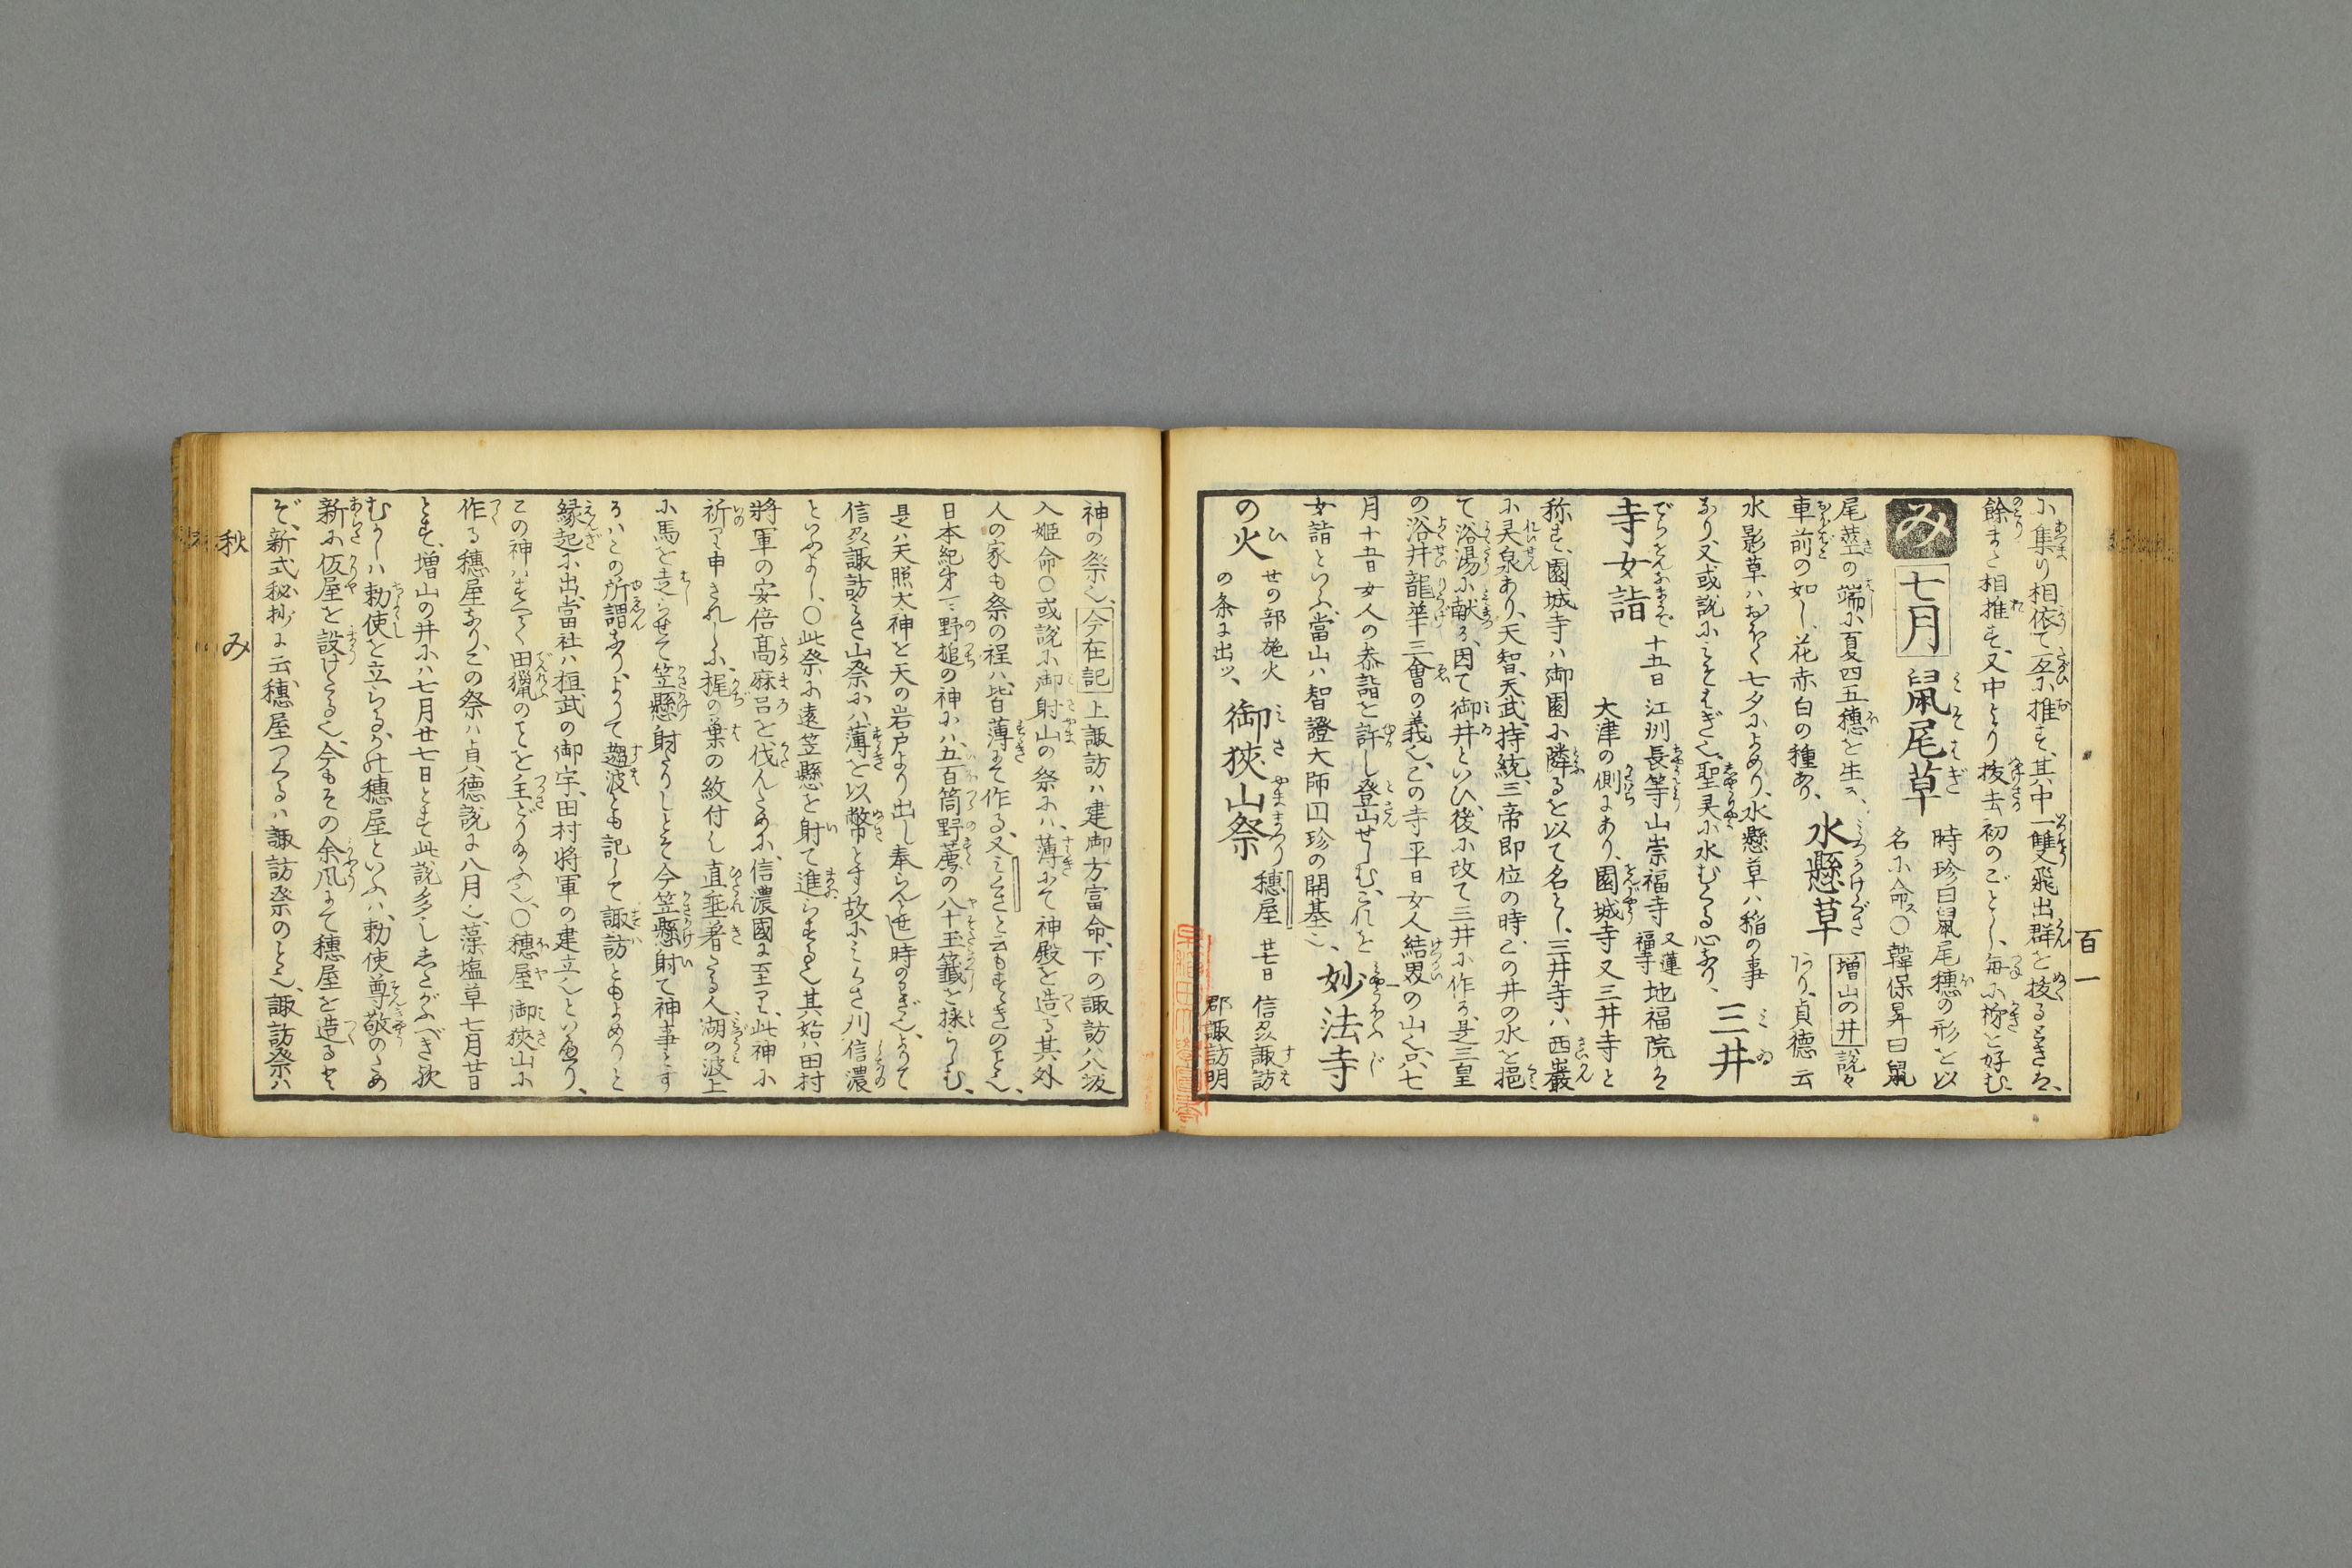 百一
に集り相依て互に推す、其中一雙飛出、群を抜るときは、
餘また相推す、又中より抜去初のごとし、毎に栁を好む
み 七月 鼠尾草 時珍曰鼠尾穗の形を以
名に命ス〇韓保昇曰鼠
尾莖の端に夏四五穗を生ス、
車前の如し、花赤白の種あり、 水懸草 増山の井 説々
あり、貞徳云
水影草ハおほく七夕によめり、水懸草ハ稲の事
なり、又或説にみそはぎ也、聖灵に水むくる心なり、 三井
寺女詣 十五日 江州長等山崇福寺 又蓮福寺 地福院は
大津の側にあり、園城寺又三井寺と
称す、園城寺ハ御園に隣るを以て名とし、三井寺ハ西巌
に灵泉あり、天智、天武、持統、三帝即位の時、この井の水を挹
て浴湯に献る、因て御井といひ、後に改て三井に作る、是三皇
の浴井、龍華三會の義也、この寺平日女人結界の山也、只七
月十五日女人の恭詣を許し登山せしむ、これを
女詣といふ、當山ハ智證大師囗珍の開基也、 妙法寺
の火 せの部施火
の条に出ッ、 御狹山祭 穗屋 廿七日 信刕諏訪
郡諏訪明
神の祭也、今在記 上諏訪ハ建御方富命、下の諏訪ハ八坂
入姫命〇或説に御射山の祭にハ、薄にて神殿を造る其外
人の家も祭の程ハ、皆薄にて作る、又みさきと云もすゝきのこと也、
日本紀㐧一ニ野槌の神にハ、五百箇野薦の八十玉籤を採らしむ、
是ハ天照太神を天の岩戸より出し奉らんと世時のわざ也、よりて
信刕諏訪みさ山祭にハ、薄を以幣とす故にみくさ刈信濃
といふよし、〇此祭に遠笠懸を射て進らする也其始ハ田村
將軍の安倍髙麻呂を伐んために、信濃國に至て、此神に
祈て申されしに、握の葉の紋付し直垂着たる人、湖の波上
に馬を走らせて笠懸射たりしとぞ今笠懸射て神事とす
るハこの所謂なり、よりて趨波とも記して諏訪ともよめりと
縁起に出、當社ハ桓武の御宇、田村将軍の建立也といへり、
この神ハすべて田獵のことを主どり給ふ也、〇穗屋 御狹山に
作る穗屋なり、この祭ハ貞徳説に八月也、藻塩草七月廿日
とす、増山の井にハ七月廿七日とす此説多し、したがふべき歟
むかしハ勅使を立らるゝ此穗屋といふハ、勅使尊敬のため
新に仮屋を設けたる也、今もその余風にて穗屋を造るとぞ
ぞ、新式秘抄に云、穗屋つくるハ諏訪祭のこと也、諏訪祭ハ
秋 み